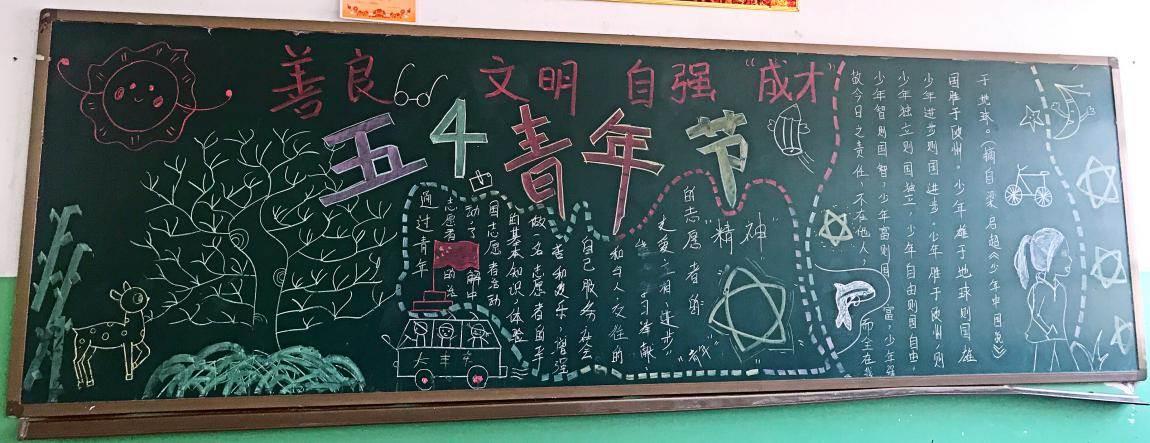 善良 文明 自强 "成才"
五4青年节
通过青年
志愿者的活
动,了解中
国志愿者活动
的基本知识,体验
做名志愿者的辛
苦和欢乐,增强
自己服务社会
和与人交往的
学习奉献、
友爱、互相、进步"
的志愿者的
"精神"
故今日之责任,不在他人,而全在我
少年智则国智,少年富则国富,少年强
少年独立则国独立,少年自由则国自由,
少年进步则国进步。少年胜于欧州,则
国胜于欧州。少年雄于地球则国雄
于地球。(摘自梁启超《少年中国说》)